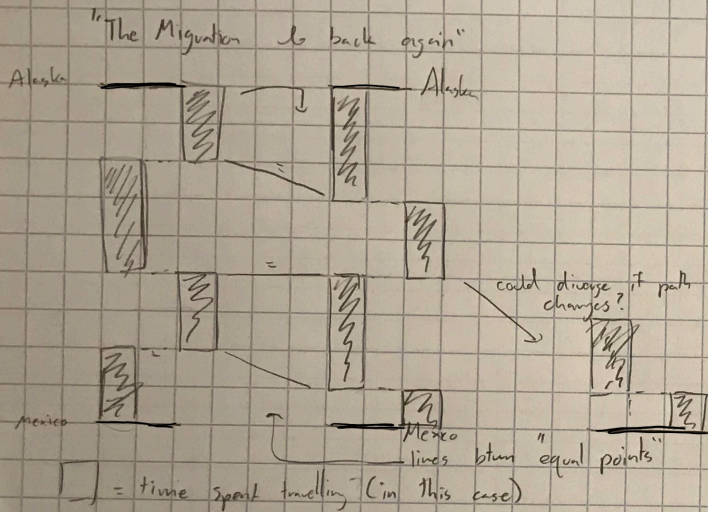 "The Migration & back again"
Alaska
Alaska
=
=
=
could diverge if path
changes?
Mexico
Mexico
lines btwn "equal points"
= time spent travelling (in this case)